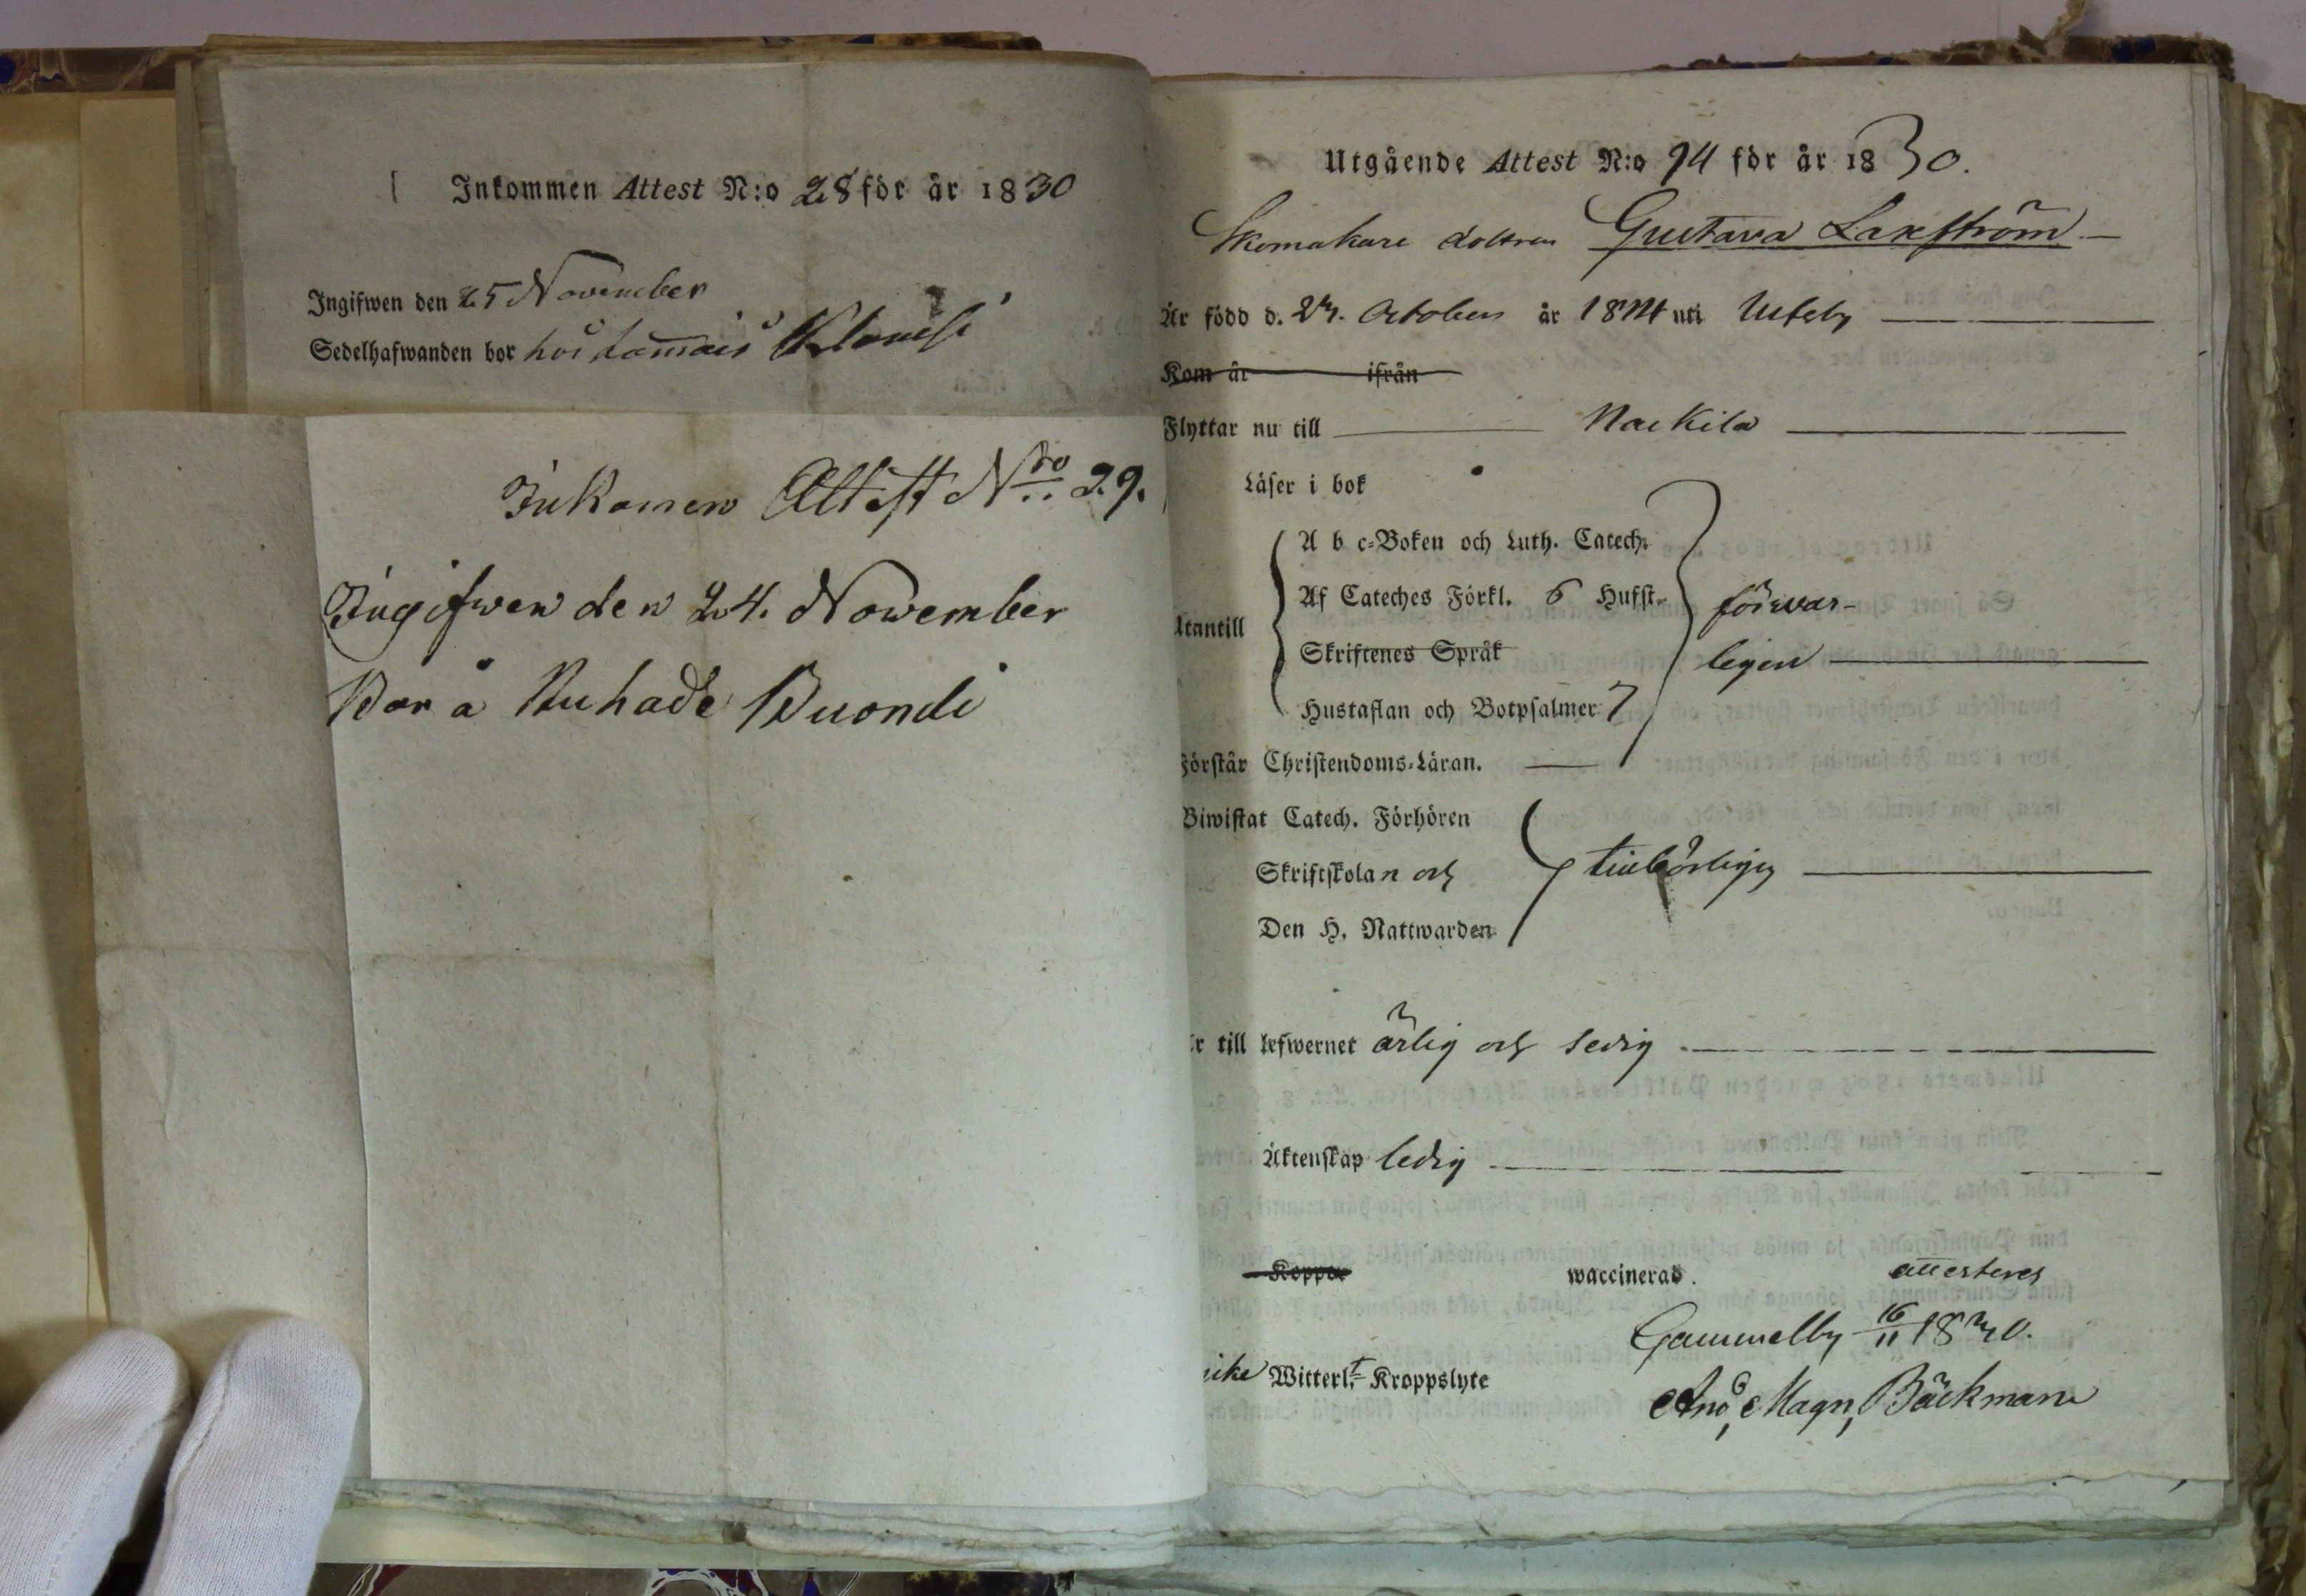 Inkommen Attest N:o 28 för år 1830
Ingifwen den 25 November
Sedelhafwanden bor hos
Inkommen Attest Nro 29.
Ingifwen den 24. November
Bor å Ruhade Buondi
Utgående Attest N:o 94 för år 1830.
Skomakare dottren Gustava Laxström
Är född d. 27. October år 1814 uti Ulfsby
Kom år ifrån
Flyttar nu till Nackila
Läser i bok
A b c-Boken och Luth. Catech.
Af Cateches Förkl. 6 Hufst.
försvar-
Utantill
Skriftenes Språk
ligen
Hustaflan och Botpsalmer 7
Förstår Christendoms-Läran.
Biwistat Catech. Förhören
Skriftskolan och
tillbörligen
Den H. Nattwarden
Är till lefwernet ärlig och sedig
Äktenskap ledig
Koppor waccinerad. attesteres
Gammelby 16/11 1830.
Witterl.t Kroppslyte
And. Magn. Bäckman